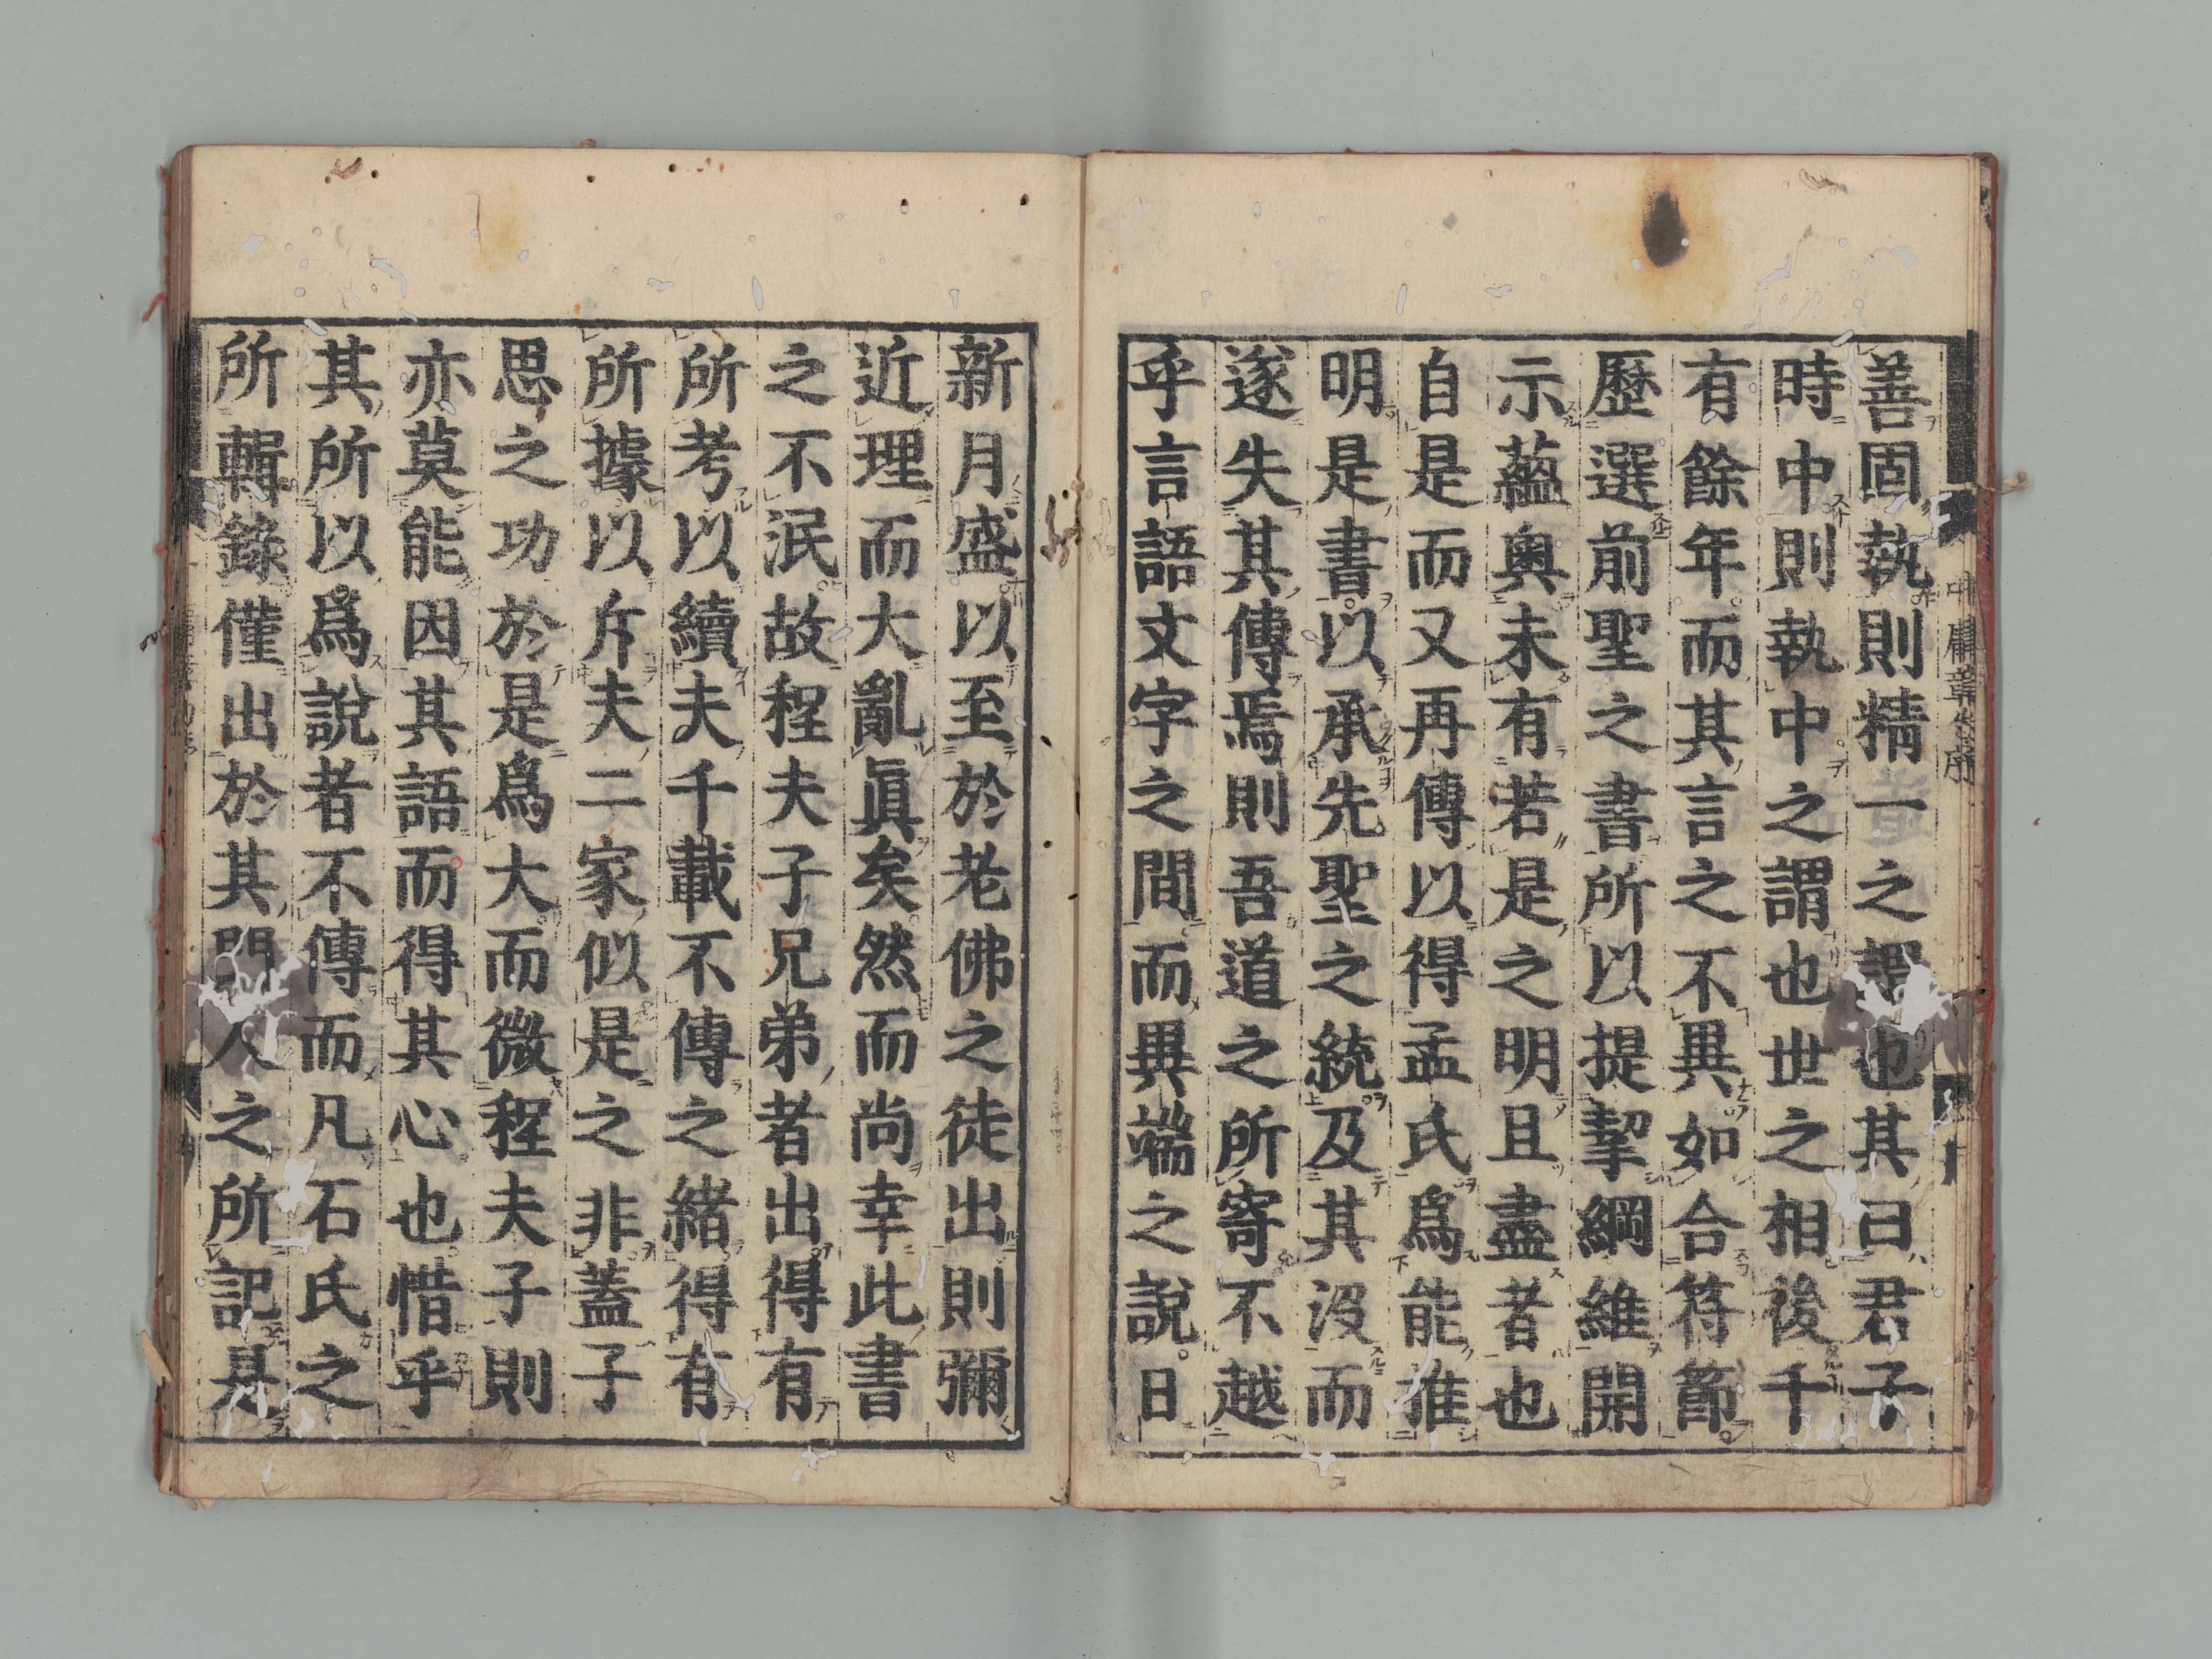 善固執則精一之謂也其曰君子
時中則執中之謂也世之相後千
有餘年而其言之不異如合符節
歷選前聖之書所以提挈綱維開
示蘊奧未有若是之明且盡者也
自是而又再傳以得孟氏爲能推
明是書以承先聖之統及其没而
遂失其傳焉則吾道之所寄不越
乎言語文字之間而異端之說日
新月盛以至於老佛之徒出則彌
近理而大亂眞矣然而尚幸此書
之不泯故程夫子兄弟者出得有
所考以續夫千載不傳之緒得有
所據以斥夫二家似是之非蓋子
思之功於是爲大而微程夫子則
亦莫能因其語而得其心也惜乎
其所以爲說者不傳而凡石氏之
所輯錄僅出於其門人之所記是
中庸章句序